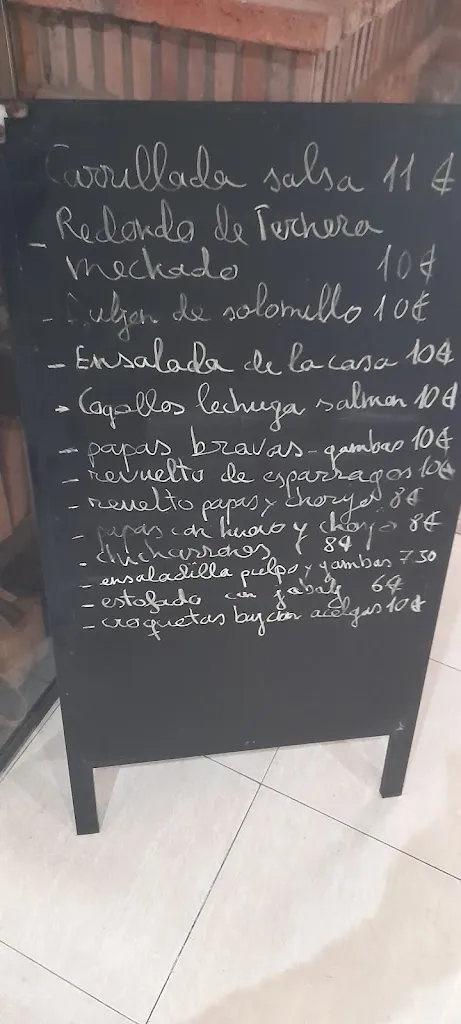 Carrillada salsa 11 €
- Redondo de Ternera
mechado 10 €
- de solomillo 10 €
- Ensalada de la casa 10 €
- Cogollos lechuga salmon 10 €
- papas bravas - gambas 10 €
- revuelto de esparragos 10 €
- revuelto papas y chorizo 8 €
- papas con huevo y chorizo 8 €
- chicharrones 8 €
- ensaladilla pulpo y gambas 7.50
- estofado con 6 €
- croquetas acelgas 10 €